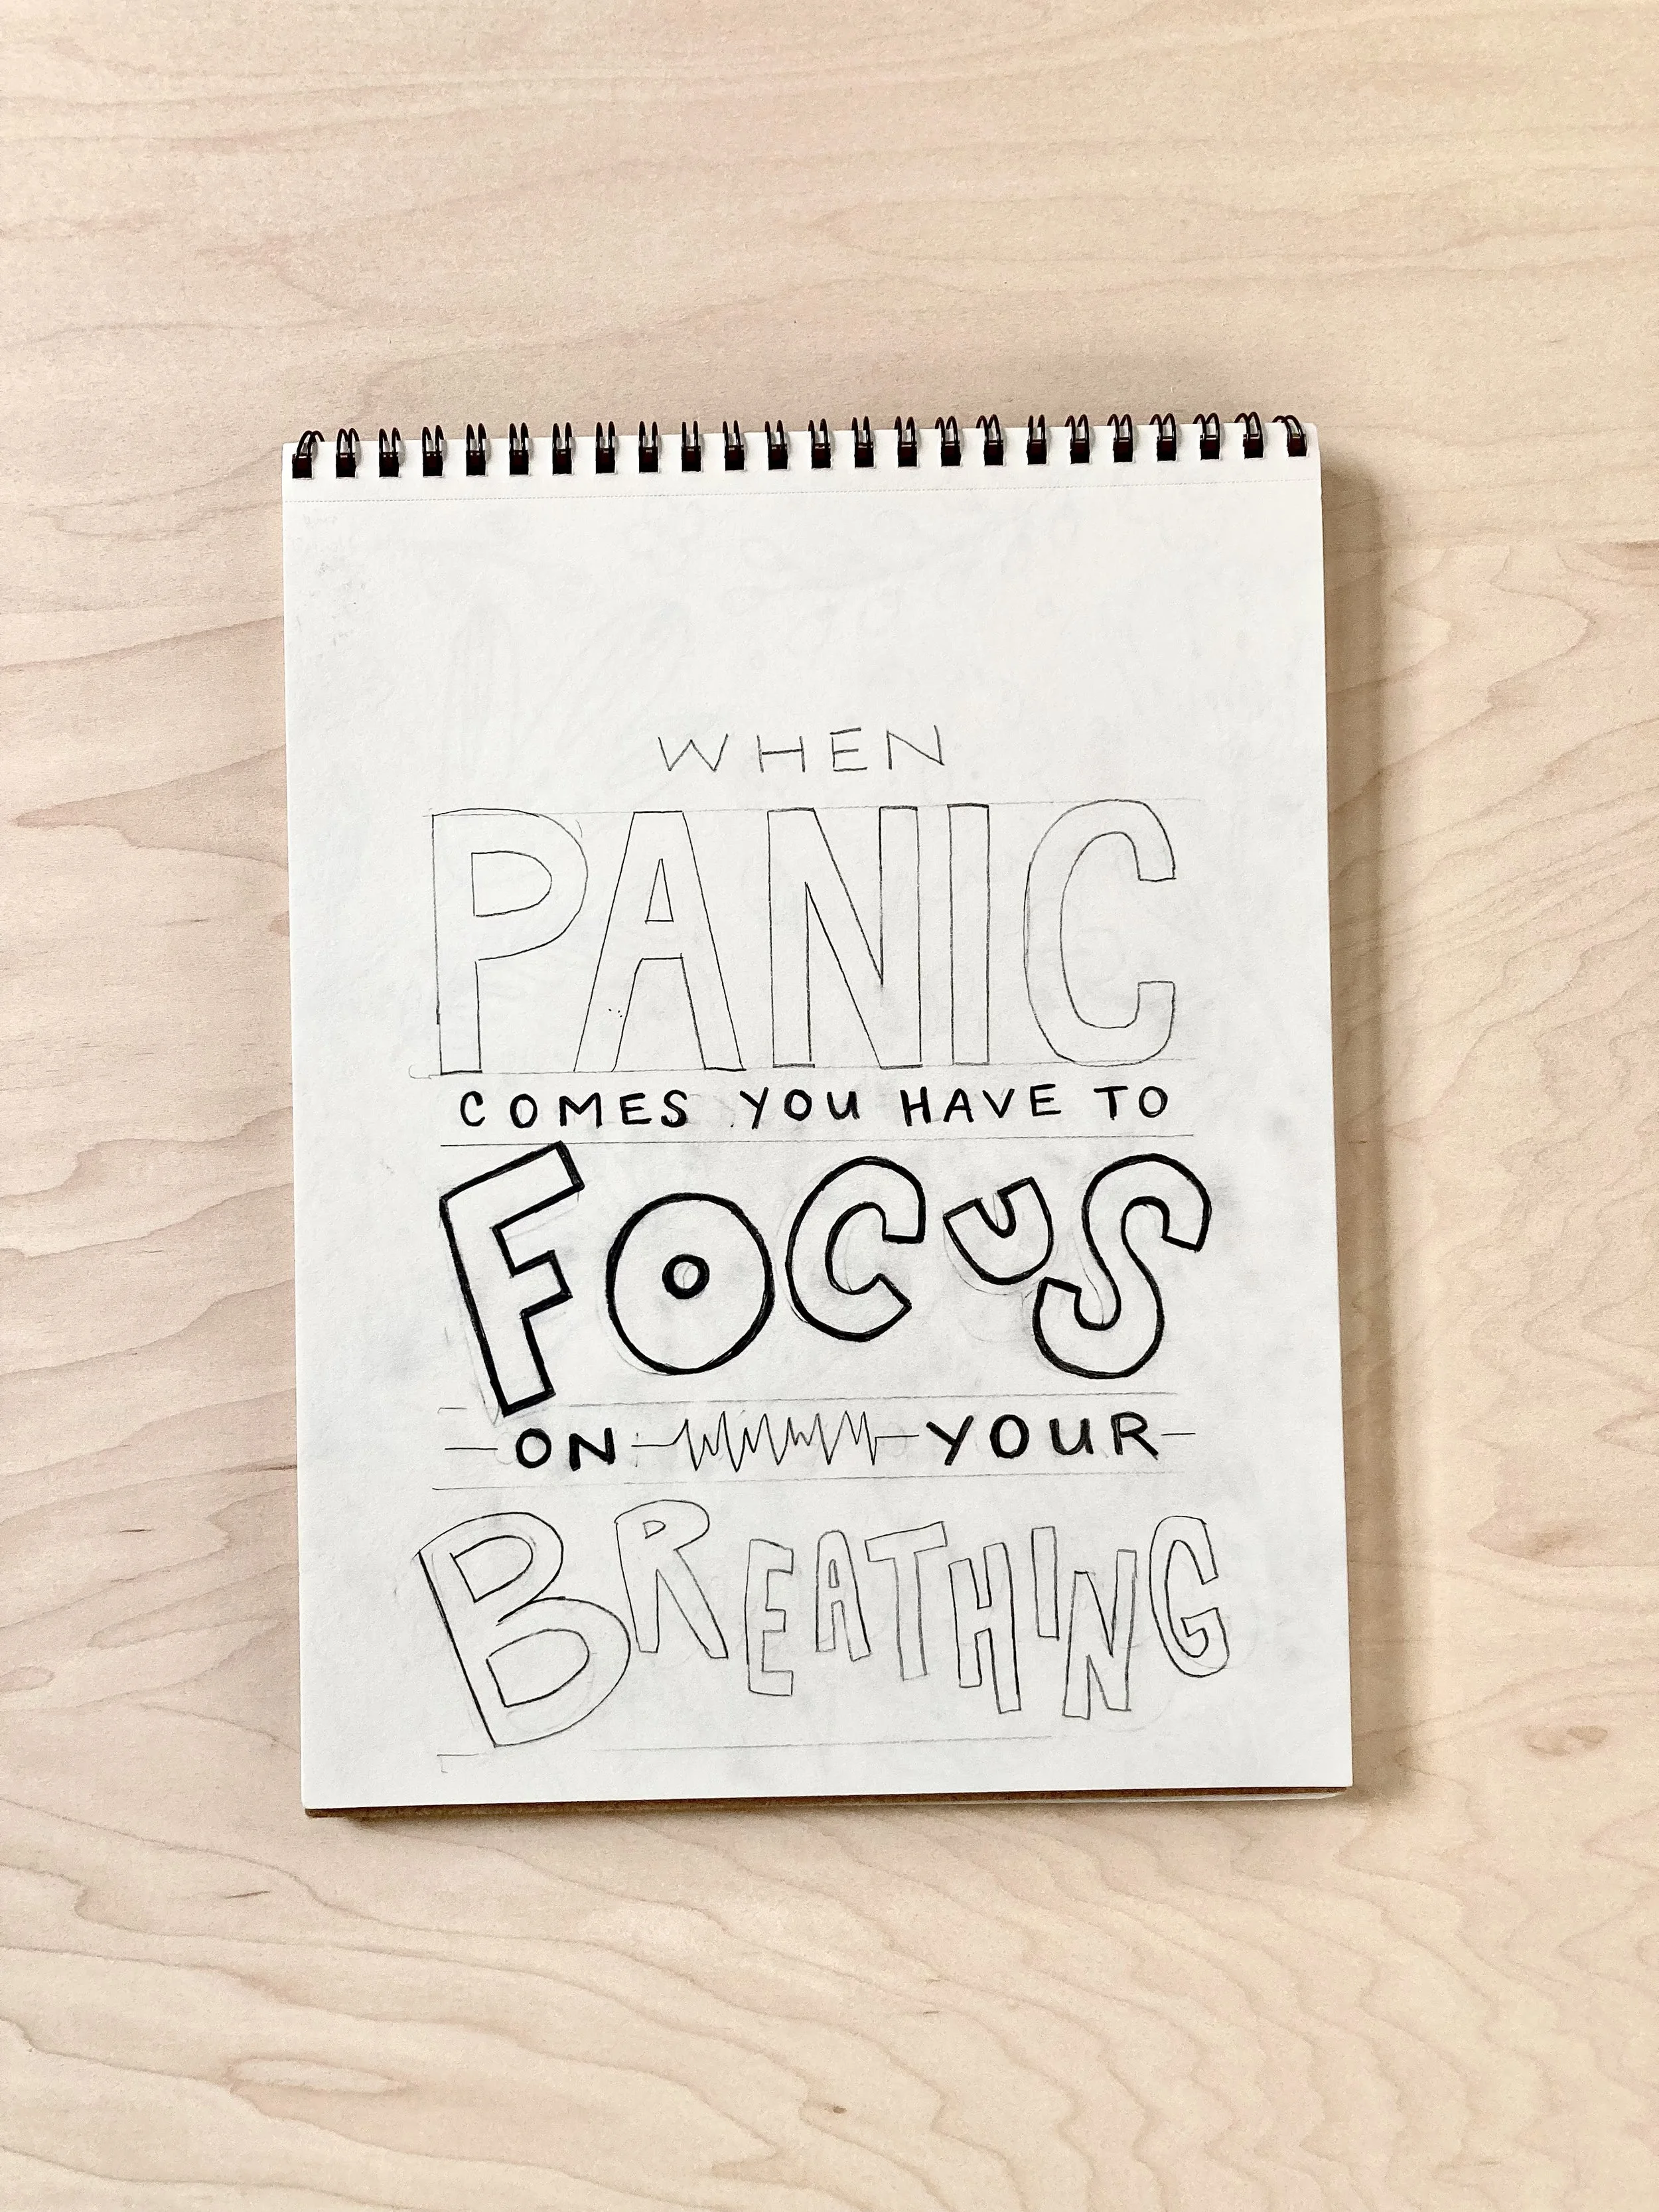 WHEN
PANIC
COMES YOU HAVE TO
FOCUS
ON YOUR
BREATHING